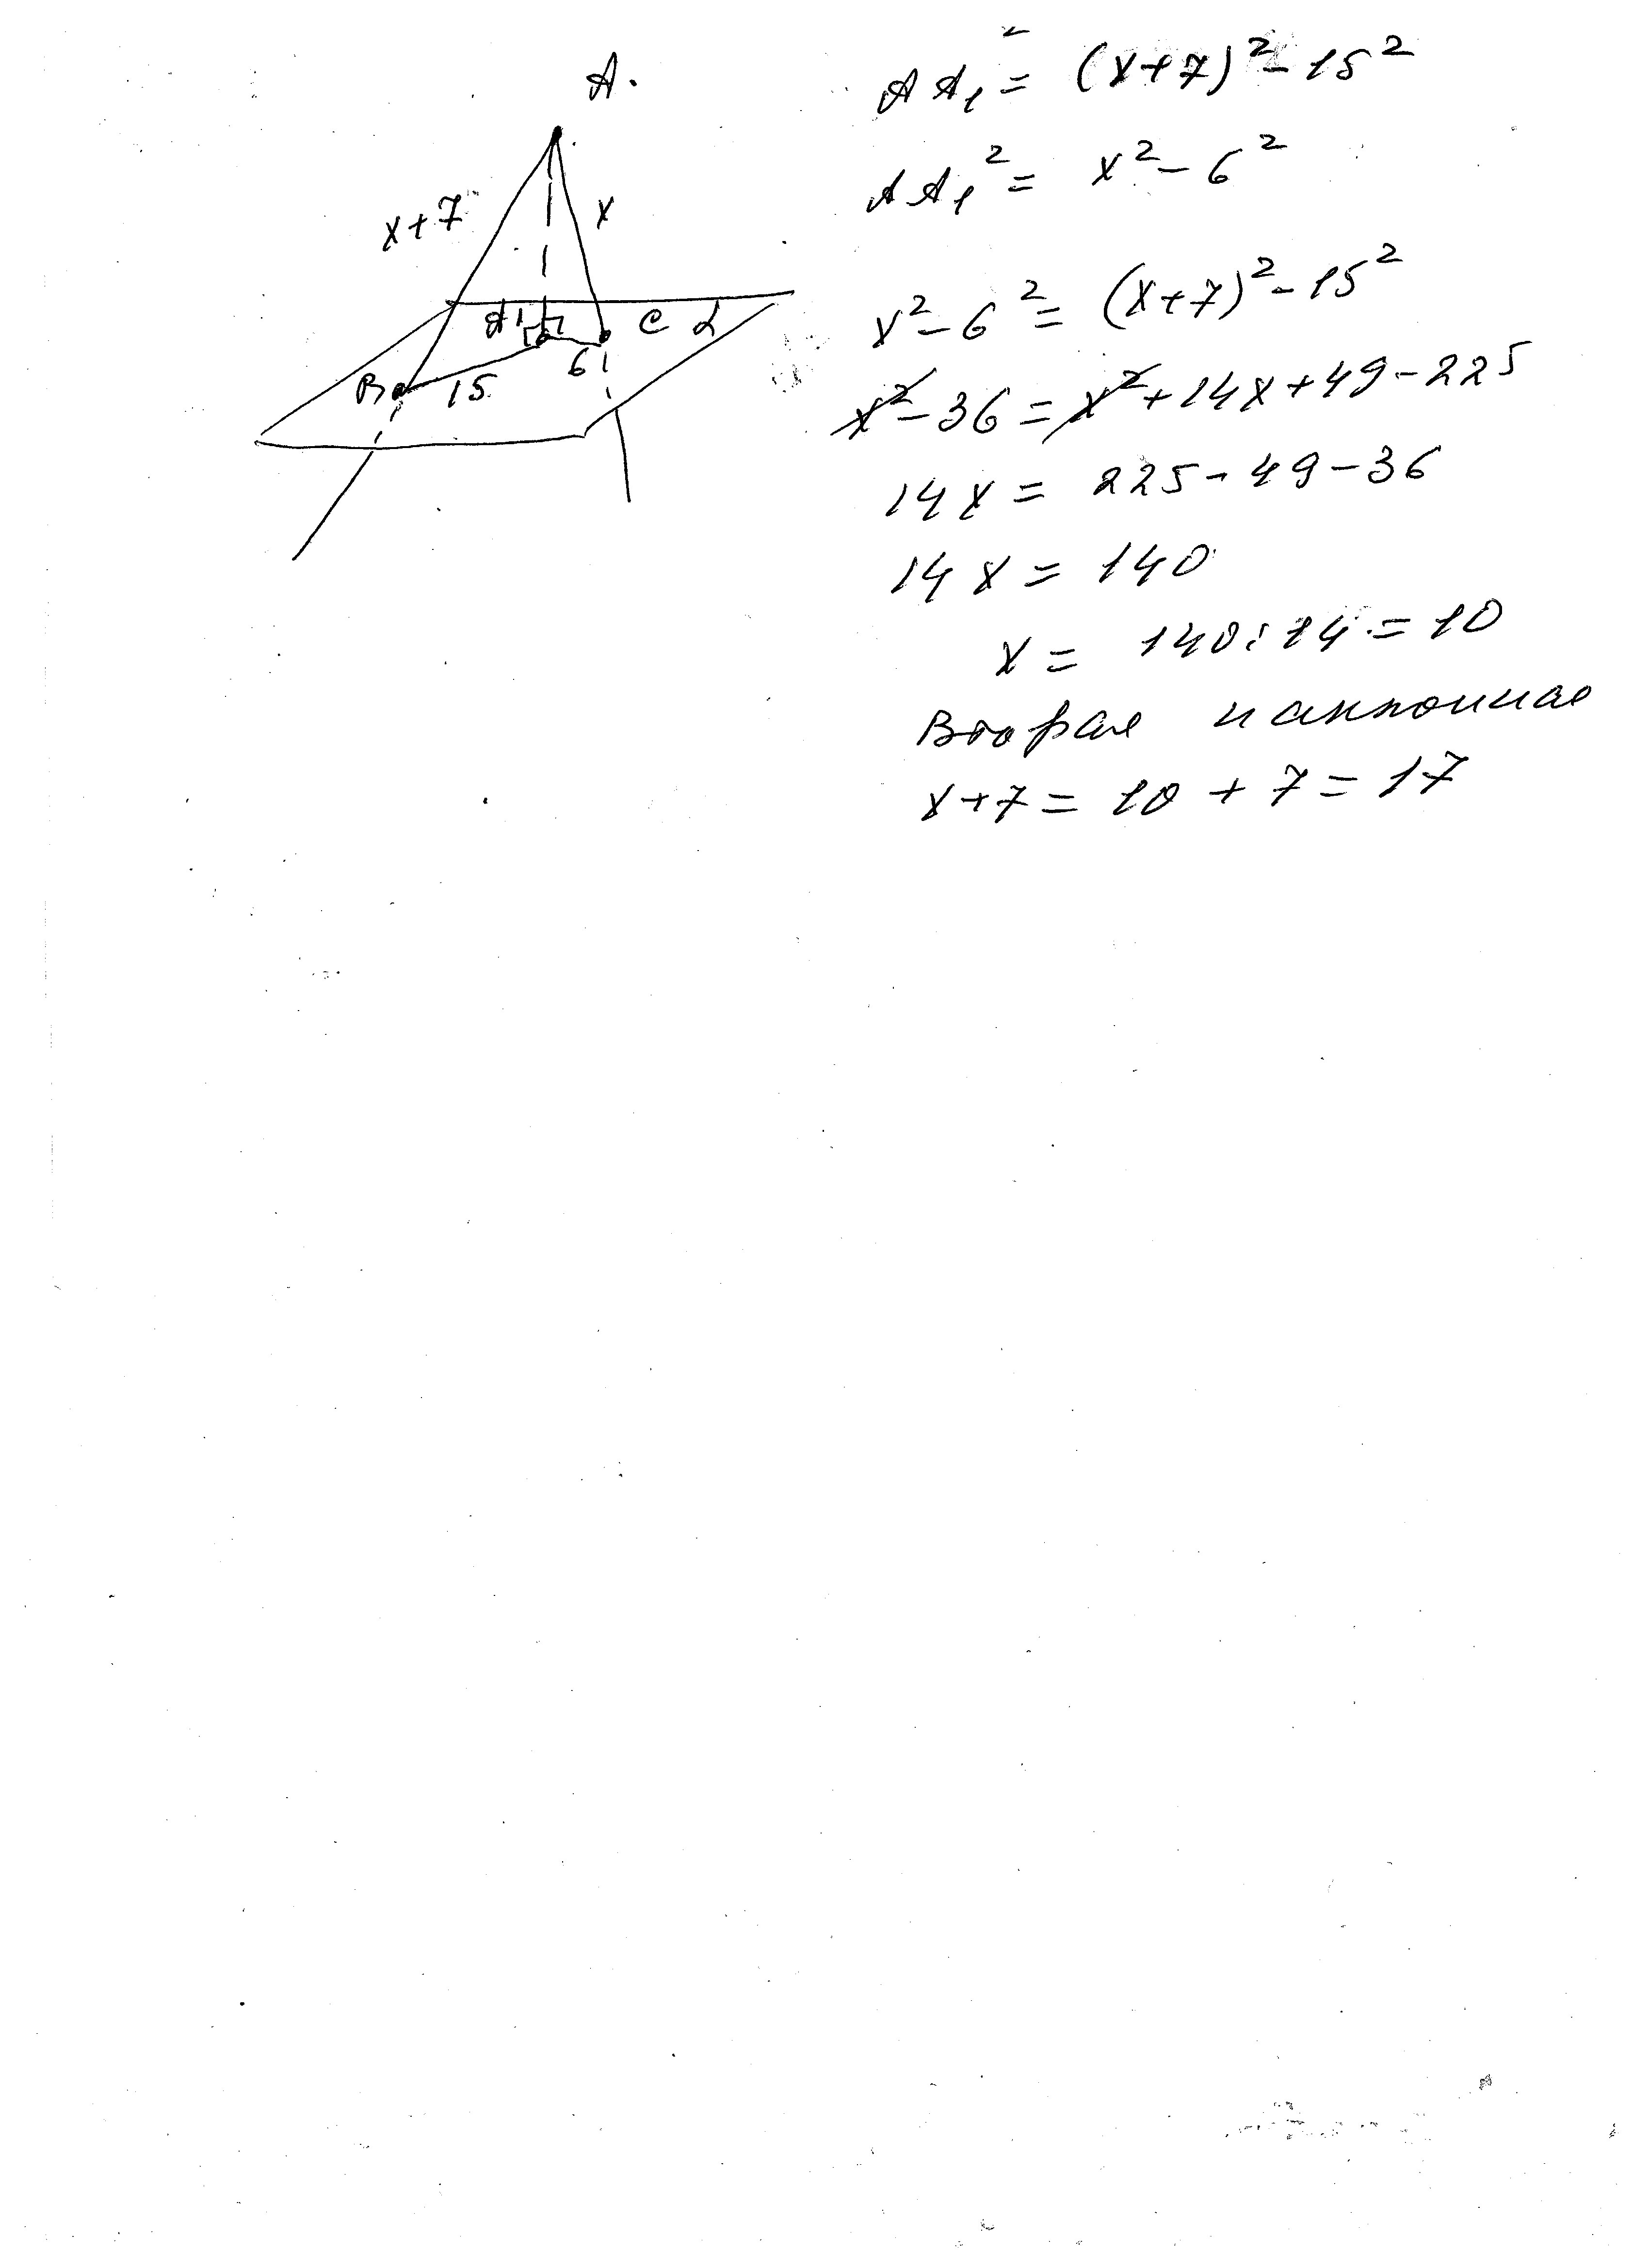 A.
x+7
x
A1
C α
B
15
6
AA₁² = (x+7)² - 15²
AA₁² = x² - 6²
x² - 6² = (x+7)² - 15²
x² - 36 = x² + 14x + 49 - 225
14x = 225 - 49 - 36
14x = 140
x = 140 : 14 = 10
Вторая наклонная
x+7 = 10 + 7 = 17